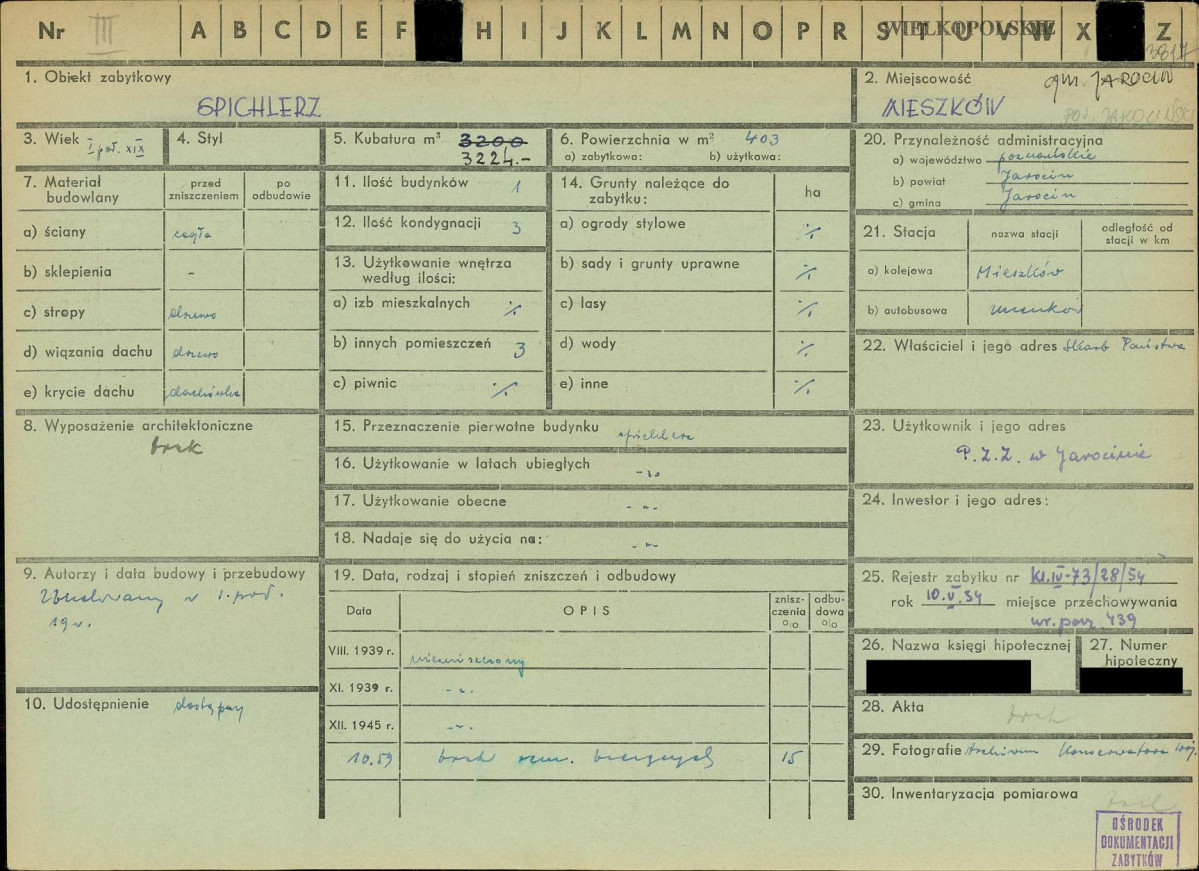 Nr III A B C D E F H I J K L M N O P R S T U V W X Z
WIELKOPOLSKIE
3817
1. Obiekt zabytkowy
SPICHLERZ
2. Miejscowość gm. JAROCIN
MIESZKÓW
pow. JAROCIŃSKI
3. Wiek I poł. XIX
4. Styl
5. Kubatura m³ 3200
3224.-
6. Powierzchnia w m² 403
a) zabytkowa: b) użytkowa:
20. Przynależność administracyjna
a) województwo poznańskie
b) powiat Jarocin
c) gmina Jarocin
7. Materiał budowlany
przed zniszczeniem
po odbudowie
a) ściany cegła
b) sklepienia -
c) stropy drzewo
d) wiązania dachu drzewo
e) krycie dachu dachówka
11. Ilość budynków 1
12. Ilość kondygnacji 3
13. Użytkowanie wnętrza
według ilości:
a) izb mieszkalnych ./.
b) innych pomieszczeń 3
c) piwnic ./.
14. Grunty należące do
zabytku:
ha
a) ogrody stylowe ./.
b) sady i grunty uprawne ./.
c) lasy ./.
d) wody ./.
e) inne ./.
21. Stacja
nazwa stacji
odległość od
stacji w km
a) kolejowa Mieszków
b) autobusowa Mieszków
22. Właściciel i jego adres Skarb Państwa
8. Wyposażenie architektoniczne
brak
15. Przeznaczenie pierwotne budynku spichlerz
16. Użytkowanie w latach ubiegłych -"-
17. Użytkowanie obecne -"-
18. Nadaje się do użycia na: -"-
23. Użytkownik i jego adres
P.Z.Z. w Jarocinie
24. Inwestor i jego adres:
9. Autorzy i data budowy i przebudowy
Zbudowany w 1. poł.
19 w.
10. Udostępnienie dostępny
19. Data, rodzaj i stopień zniszczeń i odbudowy
Data
OPIS
znisz-
czenia
o/o
odbu-
dowa
o/o
VIII. 1939 r. niezniszczony
XI. 1939 r. -"-
XII. 1945 r. -"-
10.59 brak rem. bieżących 15
25. Rejestr zabytku nr kl.IV-73/28/54
rok 10.V.54 miejsce przechowywania
nr. porz. 439
26. Nazwa księgi hipotecznej
27. Numer
hipoteczny
28. Akta brak
29. Fotografie Archiwum Konserwatora Woj.
30. Inwentaryzacja pomiarowa
brak
OŚRODEK
DOKUMENTACJI
ZABYTKÓW